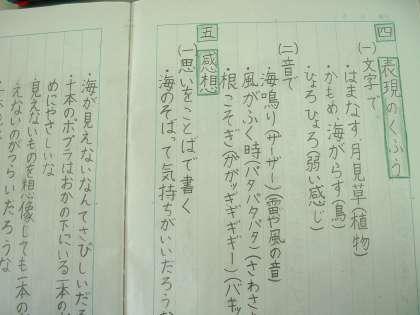 四 表現のくふう
(一)文字で
・はまなす、月見草(植物)
・かもめ、海がらす(鳥)
・ひょろひょろ(弱い感じ)
(二)音で
・海鳴り(ザーザー)(雷や風の音)
・風がふく時(バタバタバタ)(さわさ
・根こそぎ(ガガッギギギー)(バキッ
五 感想
(一)思いをことばで書く
・海のそばって気持ちがいいだろうな
・海が見えないなんてさびしいだろ
・千本のポプラはおかの下にいる一本の
めにやさしいな
・見えないものを想像しても一本の
えないのがつらいだろうな